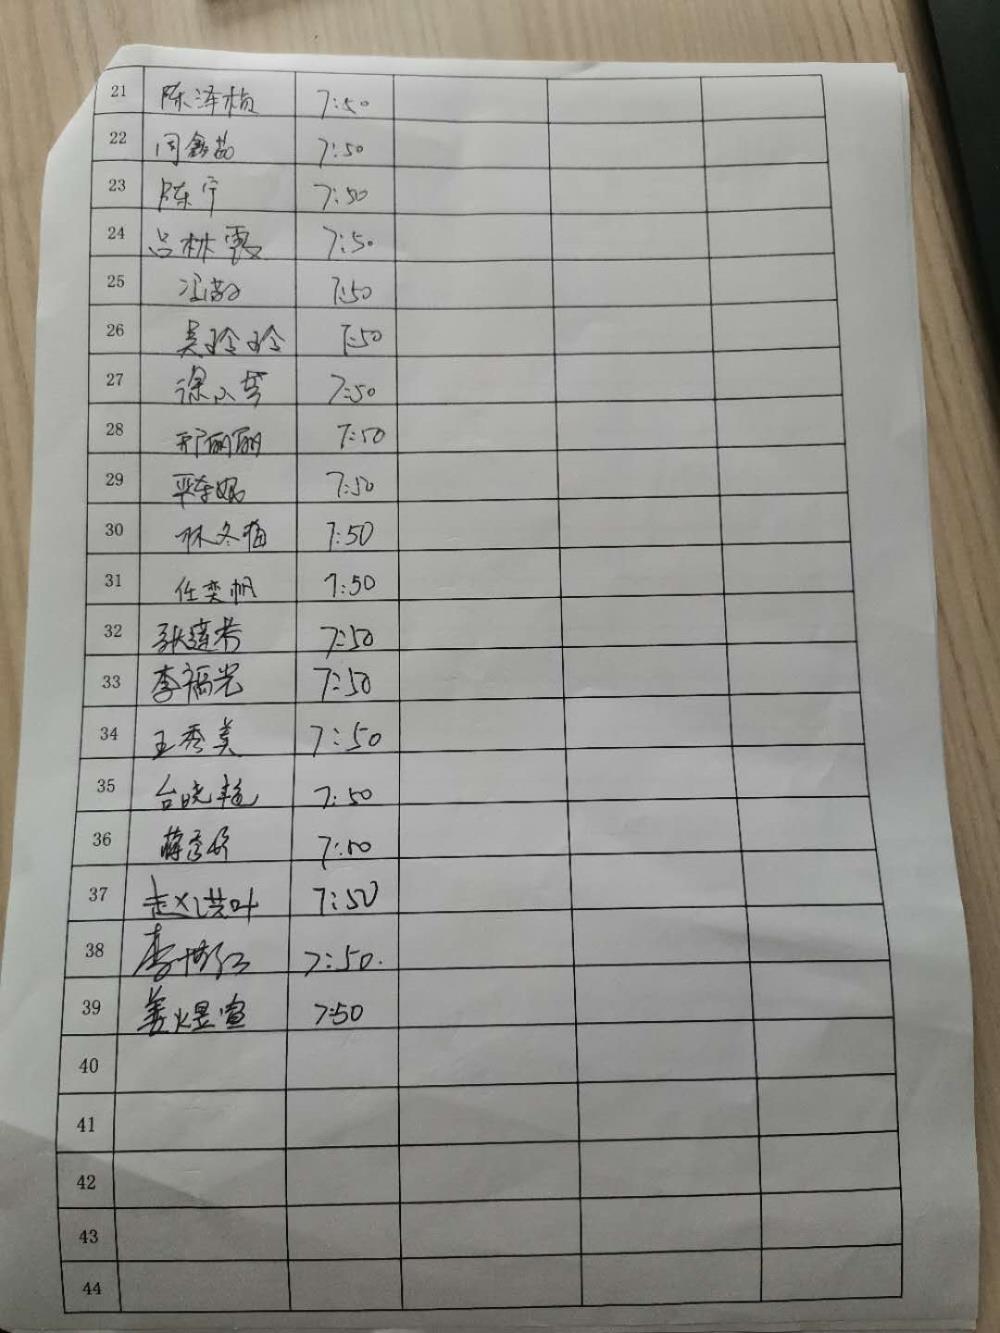 21 陈泽桢 7:50
22 周鑫茹 7:50
23 陈宁 7:50
24 吕林霞 7:50
25 7:50
26 吴玲玲 7:50
27 徐小芳 7:50
28 邢丽丽 7:50
29 7:50
30 林冬梅 7:50
31 任奕帆 7:50
32 7:50
33 李福光 7:50
34 王秀美 7:50
35 台晓艳 7:50
36 7:50
37 赵洪叶 7:50
38 7:50.
39 姜煜宣 7:50
40
41
42
43
44